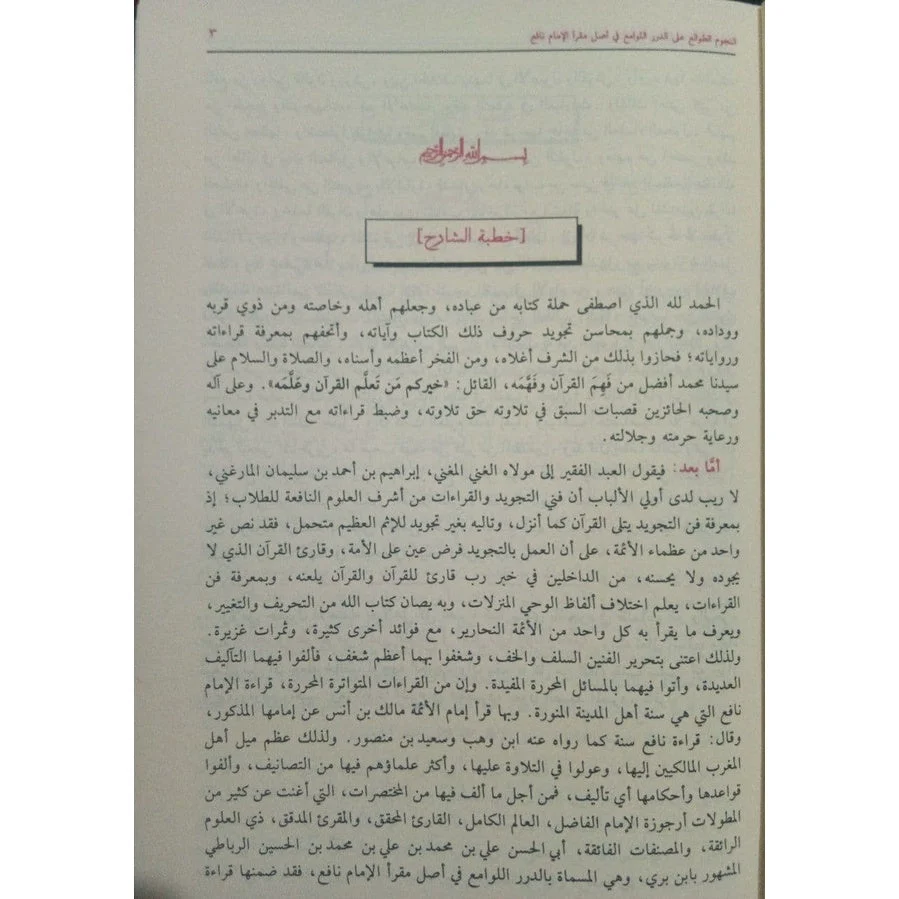 النجوم الطوالع على الدرر اللوامع في أصل مقرأ الإمام نافع ٣
بسم الله الرحمن الرحيم
[خطبة الشارح]
الحمد لله الذي اصطفى حملة كتابه من عباده، وجعلهم أهله وخاصته ومن ذوي قربه
ووداده، وجملهم بمحاسن تجويد حروف ذلك الكتاب وآياته، وأتحفهم بمعرفة قراءاته
ورواياته؛ فحازوا بذلك من الشرف أغلاه، ومن الفخر أعظمه وأسناه، والصلاة والسلام على
سيدنا محمد أفضل من فَهِمَ القرآن وفَهَّمَه، القائل: «خيركم مَن تَعلَّم القرآن وعَلَّمَه». وعلى آله
وصحبه الحائزين قصبات السبق في تلاوته حق تلاوته، وضبط قراءاته مع التدبر في معانيه
ورعاية حرمته وجلالته.
أمَّا بعد: فيقول العبد الفقير إلى مولاه الغني المغني، إبراهيم بن أحمد بن سليمان المارغني،
لا ريب لدى أولي الألباب أن فني التجويد والقراءات من أشرف العلوم النافعة للطلاب؛ إذ
بمعرفة فن التجويد يتلى القرآن كما أنزل، وتاليه بغير تجويد للإثم العظيم متحمل، فقد نص غير
واحد من عظماء الأئمة، على أن العمل بالتجويد فرض عين على الأمة، وقارئ القرآن الذي لا
يجوده ولا يحسنه، من الداخلين في خبر رب قارئ للقرآن والقرآن يلعنه، وبمعرفة فن
القراءات، يعلم إختلاف ألفاظ الوحي المنزلات، وبه يصان كتاب الله من التحريف والتغيير،
ويعرف ما يقرأ به كل واحد من الأئمة النحارير، مع فوائد أخرى كثيرة، وثمرات غزيرة.
ولذلك اعتنى بتحرير الفنين السلف والخف، وشغفوا بهما أعظم شغف، فألفوا فيهما التآليف
العديدة، وأتوا فيهما بالمسائل المحررة المفيدة. وإن من القراءات المتواترة المحررة، قراءة الإمام
نافع التي هي سنة أهل المدينة المنورة. وبها قرأ إمام الأئمة مالك بن أنس عن إمامها المذكور،
وقال: قراءة نافع سنة كما رواه عنه ابن وهب وسعيد بن منصور. ولذلك عظم ميل أهل
المغرب المالكيين إليها، وعولوا في التلاوة عليها، وأكثر علماؤهم فيها من التصانيف، وألفوا
قواعدها وأحكامها أي تأليف، فمن أجل ما ألف فيها من المختصرات، التي أغنت عن كثير من
المطولات أرجوزة الإمام الفاضل، العالم الكامل، القارئ المحقق، والمقرئ المدقق، ذي العلوم
الرائقة، والمصنفات الفائقة، أبي الحسن علي بن محمد بن علي بن محمد بن الحسين الرباطي
المشهور بابن بري، وهي المسماة بالدرر اللوامع في أصل مقرأ الإمام نافع، فقد ضمنها قراءة